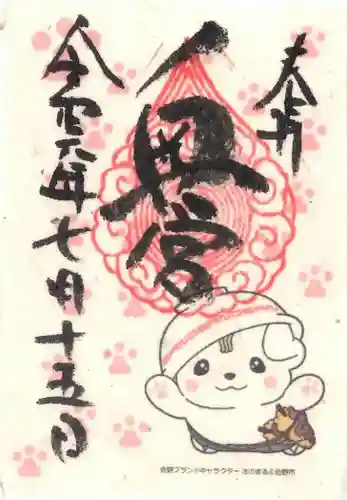 奉拝
宮
令和六年七月十五日
佐野ブランドキャラクター さのまる©佐野市